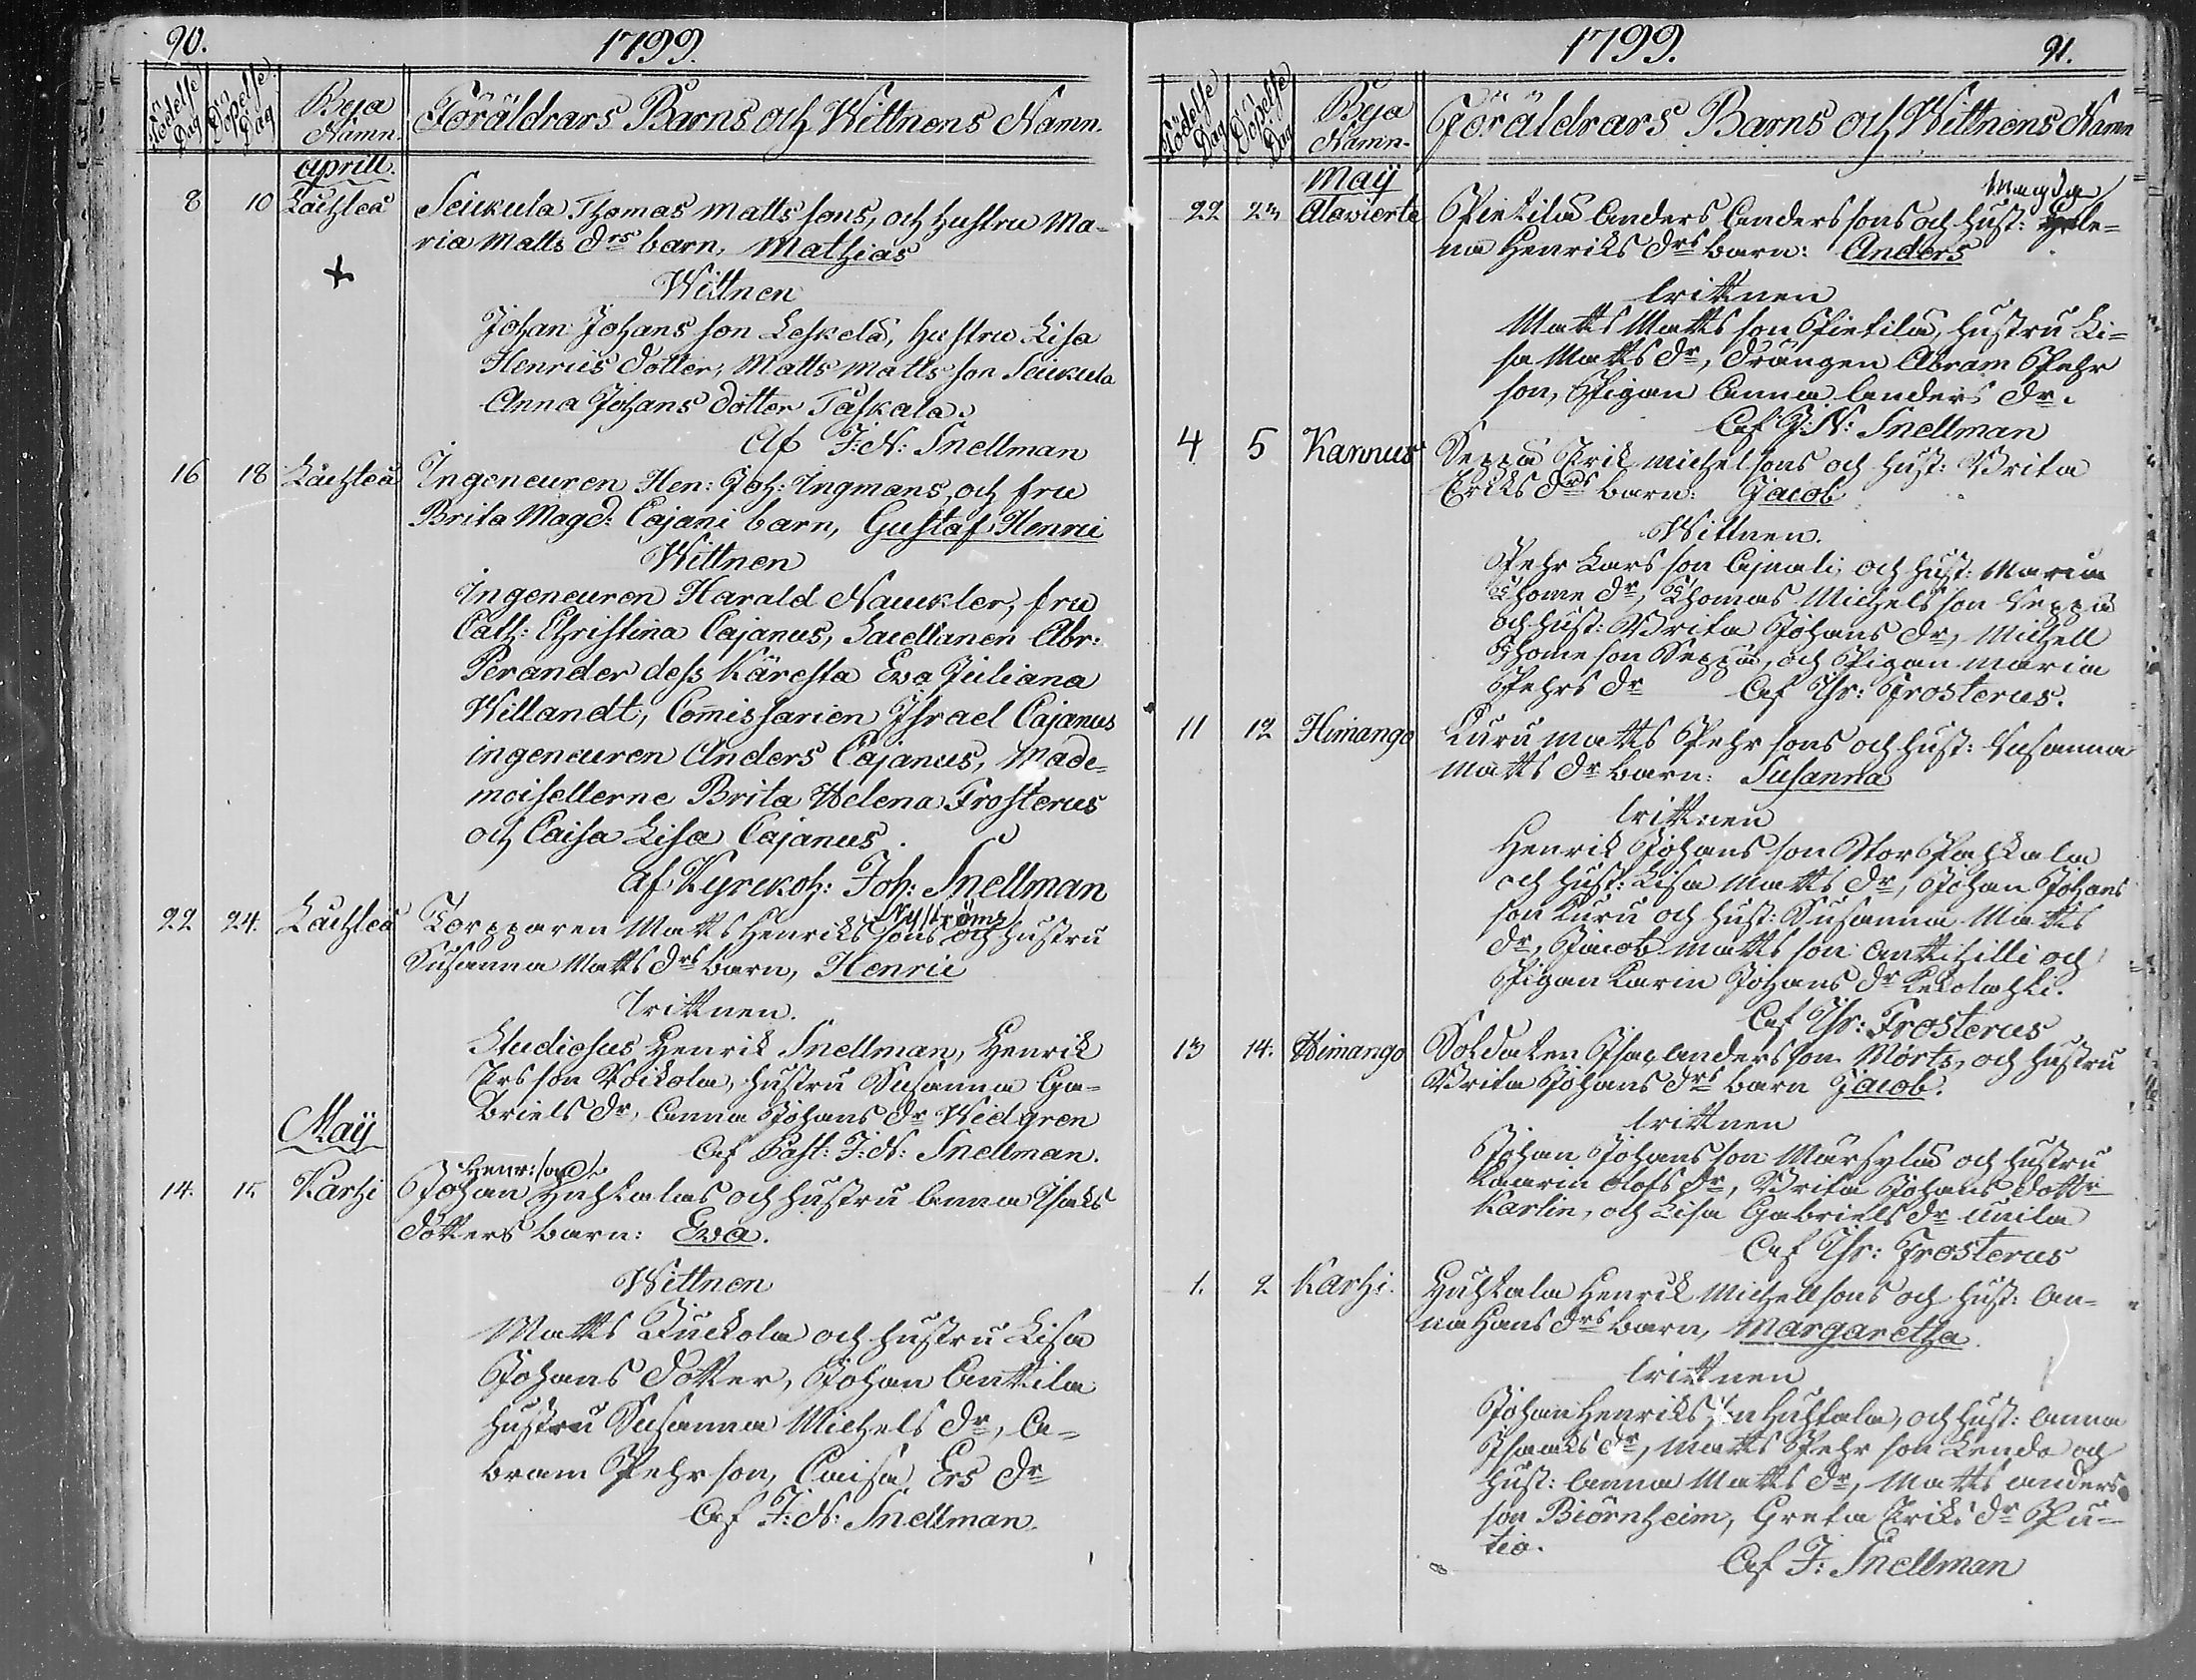 90.
1799.
Födelse Dag
Döpelse Dag
Beja Namn.
Föräldrars Barns och Wittnens Namn.
Aprill.
8 10 Lächteå Seukula Thomas Matts sons, och hustru Ma-
ria Matts drs barn, Mathias
Wittnen
Johan Johans son Leskelä, hustru Lisa
Henrics dotter, Matts Matts son Seukula
Anna Johans dotter Taskala.
Af J: N: Snellman
16 18 Lächteå Ingeneuren Hen: Joh: Ingmans och fru
Brita Magd: Cajani barn, Gustaf Henric
Wittnen
Ingeneuren Harald Nauckler, fru
Cath: Christina Cajanus, Sacellanen Abr:
Perander dess Käresta Eva Juliana
Willandt, Commissarien Israel Cajanus
ingeneuren Anders Cajanus, Made-
moisellerne Brita Helena Frosterus
och Caisa Lisa Cajanus.
af Kyrckoh: Joh: Snellman
Nyströms
22 24. Lächteå Torpparen Matts Henriks sons och hustru
Susanna Matts drs barn, Henric
Wittnen.
Studiosus Henrik Snellman, Henrik
Ers son Roikola, hustru Susanna Ga-
briels dr, Anna Johans dr Widgren
Af Past: J: N: Snellman.
May
Henr: sons
14. 15 Karhi Johan Huhtalas och hustru Anna Isaks
dotters barn: Eva.
Wittnen
Matts Juckola och hustru Lisa
Johans dotter, Johan Anttila
hustru Susanna Michels dr, A-
bram Pehr son, Caisa Ers dr
Af J: N: Snellman.
1799.
91.
Födelse Dag
Döpelse Dag
Beja Namn.
Föräldrars Barns och Wittnens Namn
May
Magda
22 23 Alavierte Pietilä Anders Anders sons och hust: Hele-
na Henriks drs barn: Anders
Wittnen
Matts Matts son Pietilä, hustru Li-
sa Matts dr, drängen Abram Pehr
son, Pigan Anna Anders dr.
Af J: N: Snellman
4 5 Kannus Seppä Erik Michel sons och hust: Brita
Eriks drs barn: Jacob
Wittnen.
Pehr Lars son och hust: Maria
Thome dr, Thomas Michels son Seppä
och hust: Brita Johans dr, Michell
Thome son Seppä, och Pigan Maria
Pehrs dr Af Chr: Frosterus.
11 12 Himango Kuru Matts Pehr sons och hust: Susanna
Matts dr barn: Susanna
Wittnen
Henrik Johans son Stor Pahkala
och hust: Lisa Matts dr, Johan Johans
son Kuru och hust: Susanna Matts
dr, Jacob Matts son Anttihilli och
Pigan Karin Johans dr Kekolahti.
Af Chr: Frosterus
13 14. Himango Soldaten Isac Anders son Mörts, och hustru
Brita Johans drs barn Jacob.
Wittnen
Johan Johans son Märsylä och hustru
Kaarin Olofs dr, Brita Johans dottr
Karlin, och Lisa Gabriels dr Unila
Af Chr: Frosterus
1. 2 Karhi. Huhtala Henrik Michell sons och hust: An-
na Hans drs barn, Margaretha.
Wittnen
Johan Henriks son Huhtala, och hust: Anna
Isaaks dr, Matts Pehr son Lende och
hust: Anna Matts dr, Matts Anders
son Biörnheim, Greta Eriks dr Pu-
tio.
Af J: Snellman